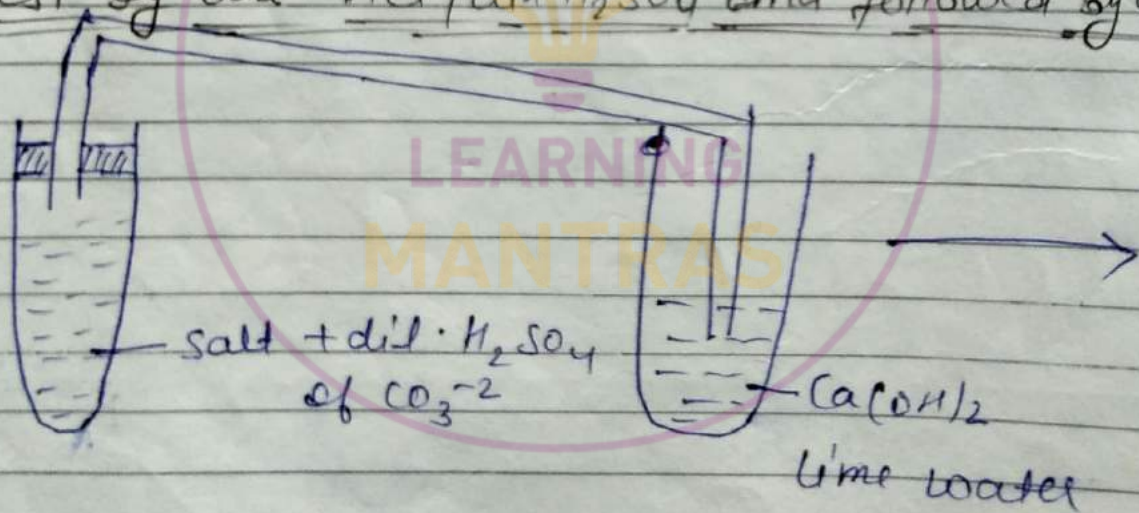 LEARNING
MANTRAS
salt + dil. H2SO4
of CO3-2
Ca(OH)2
lime water